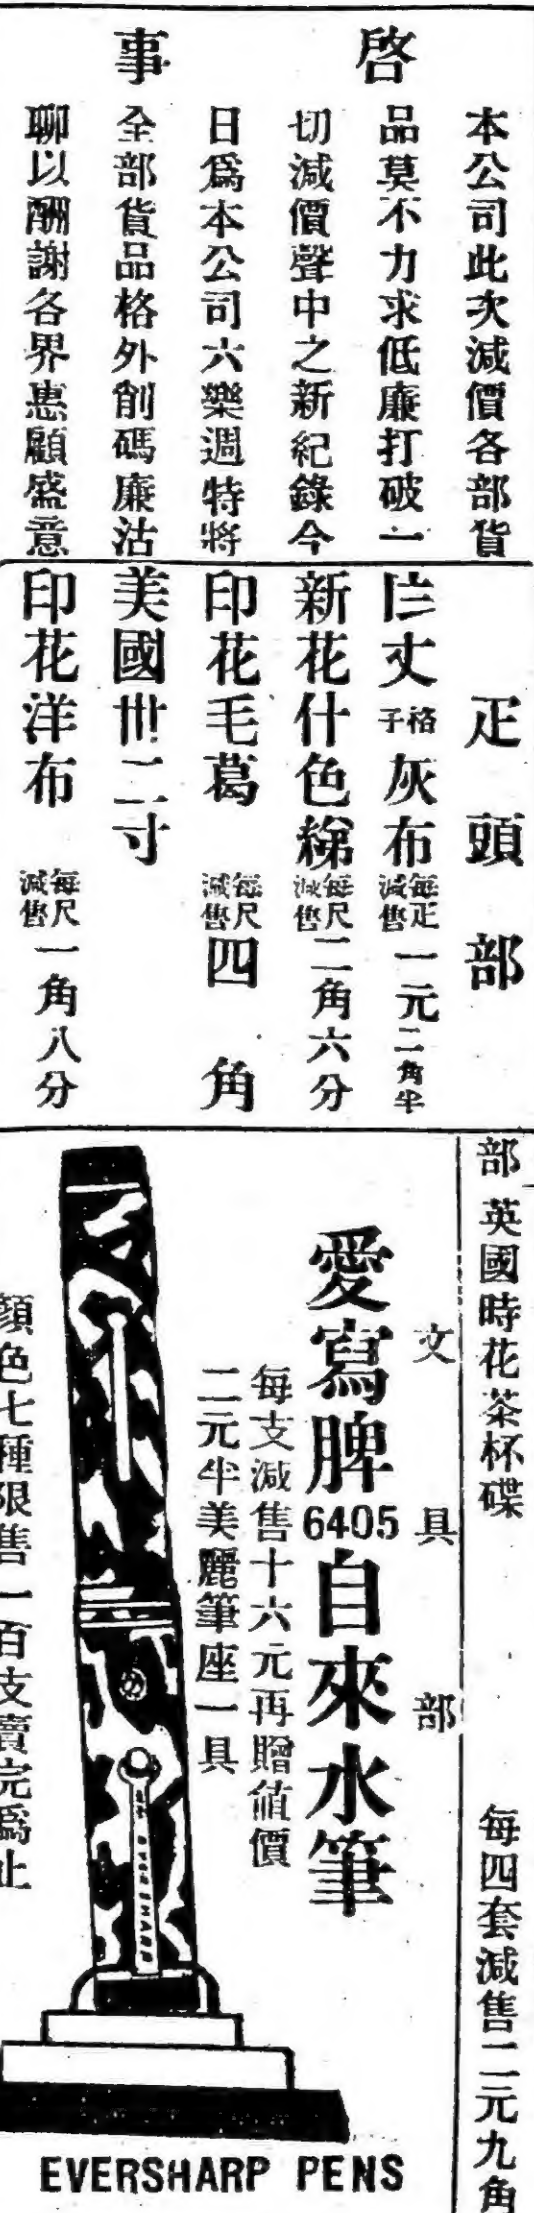 啓事
本公司此次減價各部貨
品莫不力求低廉打破一
切減價聲中之新紀錄今
日爲本公司六樂週特將
全部貨品格外削碼廉沽
聊以酬謝各界惠顧盛意
疋頭部
丈格子灰布每疋減售一元二角半
新花什色綈每尺減售二角六分
印花毛葛每尺減售四角
美國卅二寸
印花洋布每尺減售一角八分
部英國時花茶杯碟 每四套減售二元九角
文具部
愛寫脾6405自來水筆
每支減售十六元再贈值價
二元半美麗筆座一具
EVERSHARP
顏色七種限售一百支賣完爲止
EVERSHARP PENS